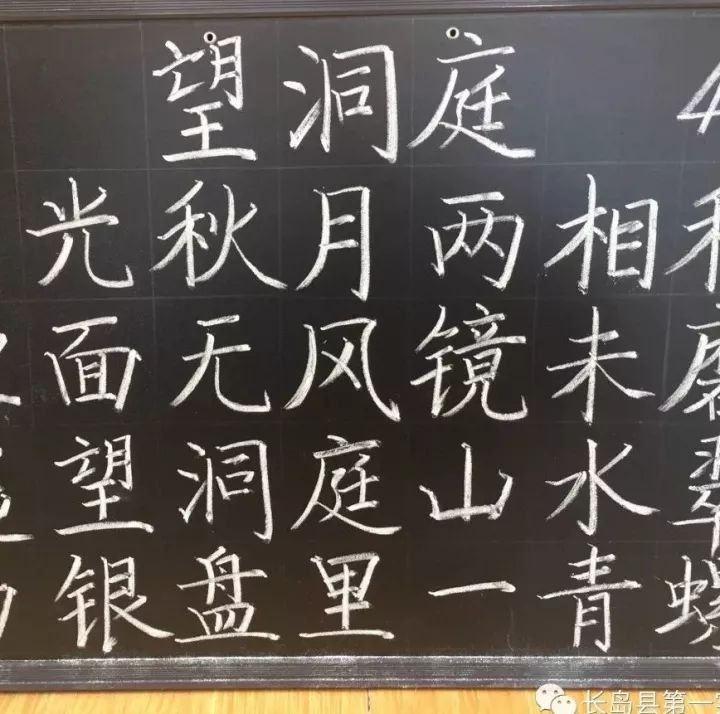 望洞庭
光秋月两相
面无风镜未磨
望洞庭山水翠
银盘里一青螺
长岛县第一